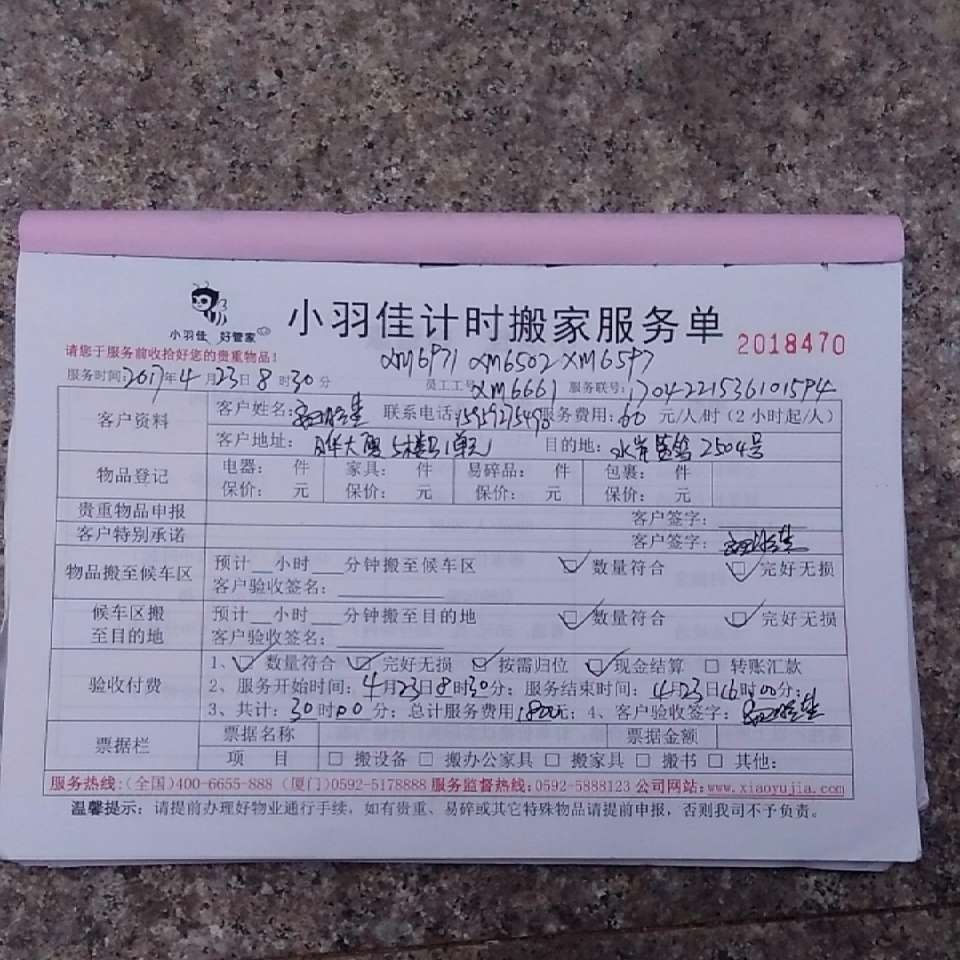 小羽佳 好管家
小羽佳计时搬家服务单
2018470
请您于服务前收拾好您的贵重物品!
XM6971 XM6502 XM6597
服务时间:2017年4月23日8时30分 员工工号 XM6661 服务联号:1704221536101594
客户资料
客户姓名: 联系电话: 服务费用:60元/人/时(2小时起/人)
客户地址: 5楼 1单元 目的地: 水岸 2504号
物品登记
电器: 件 家具: 件 易碎品: 件 包裹: 件
保价: 元 保价: 元 保价: 元 保价: 元
贵重物品申报 客户签字:
客户特别承诺 客户签字:
物品搬至候车区
预计__小时___分钟搬至候车区 ☑数量符合 ☑完好无损
客户验收签名:
候车区搬至目的地
预计__小时___分钟搬至目的地 ☑数量符合 ☑完好无损
客户验收签名:
验收付费
1、☑数量符合 ☑完好无损 ☑按需归位 ☑现金结算 □转账汇款
2、服务开始时间:4月23日8时30分;服务结束时间:4月23日16时00分;
3、共计:30时00分;总计服务费用1800元;4、客户验收签字:
票据栏
票据名称 票据金额
项 目 □ 搬设备 □ 搬办公家具 □ 搬家具 □ 搬书 □ 其他:
服务热线:(全国)400-6655-888 (厦门)0592-5178888 服务监督热线:0592-5888123 公司网站:www.xiaoyujia.com
温馨提示:请提前办理好物业通行手续,如有贵重、易碎或其它特殊物品请提前申报,否则我司不予负责。